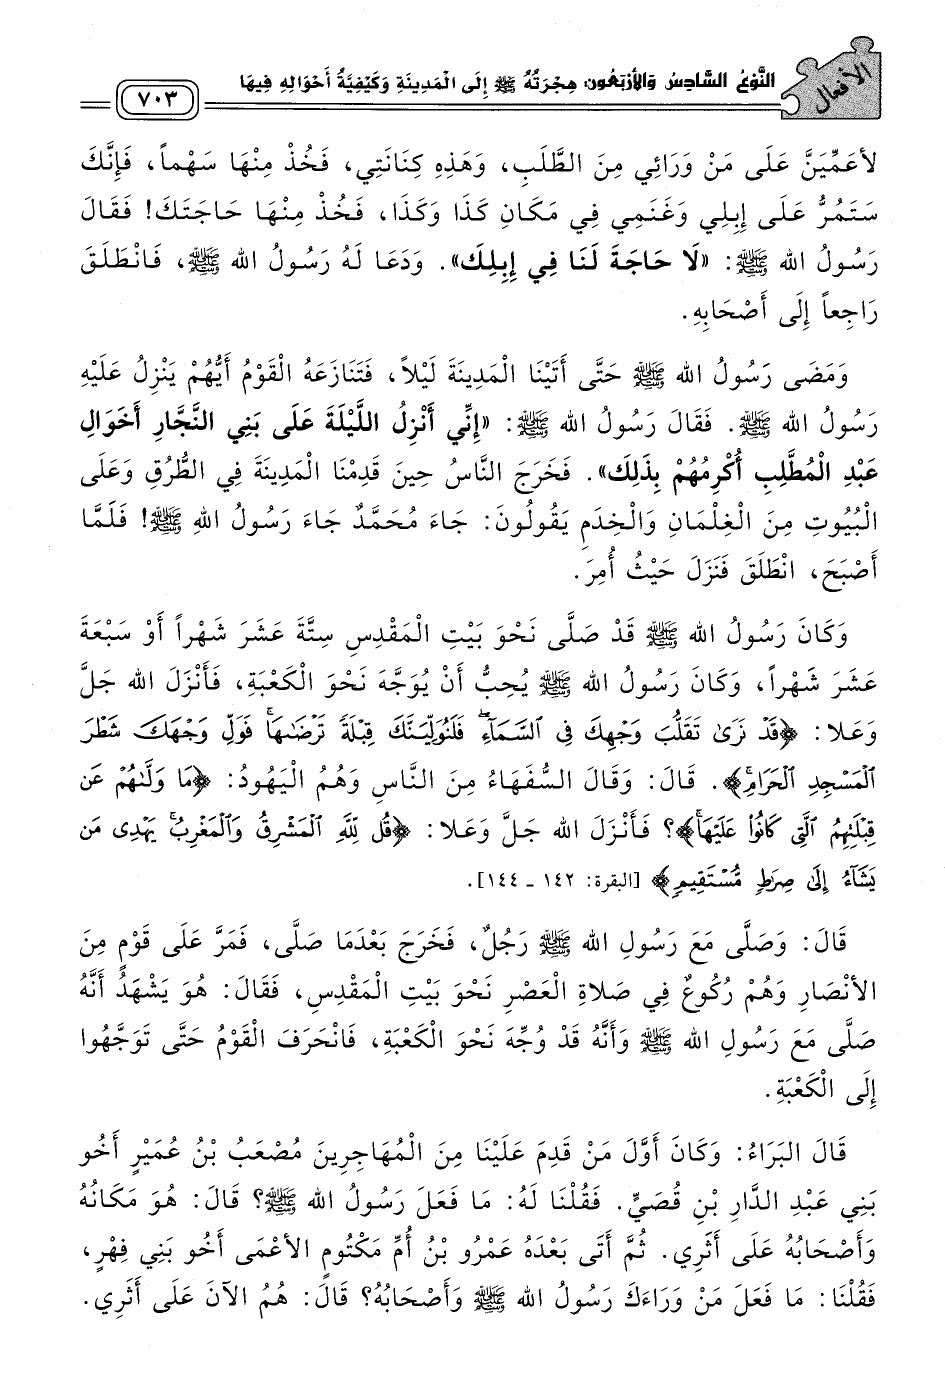 الأفعال
النَّوْعُ السَّادِسُ وَالأَرْبَعُون: هِجْرَتُهُ ﷺ إِلَى الْمَدِينَةِ وَكَيْفِيَّةُ أَحْوَالِهِ فِيهَا
٧٠٣
لأُعَمِّيَنَّ عَلَى مَنْ وَرَائِي مِنَ الطَّلَبِ، وَهَذِهِ كِنَانَتِي، فَخُذْ مِنْهَا سَهْماً، فَإِنَّكَ
سَتَمُرُّ عَلَى إِبِلِي وَغَنَمِي فِي مَكَانِ كَذَا وَكَذَا، فَخُذْ مِنْهَا حَاجَتَكَ! فَقَالَ
رَسُولُ الله ﷺ: «لَا حَاجَةَ لَنَا فِي إِبِلِك». وَدَعَا لَهُ رَسُولُ الله ﷺ، فَانْطَلَقَ
رَاجِعاً إِلَى أَصْحَابِهِ.
وَمَضَى رَسُولُ الله ﷺ حَتَّى أَتَيْنَا الْمَدِينَةَ لَيْلاً، فَتَنَازَعَهُ الْقَوْمُ أَيُّهُمْ يَنْزِلُ عَلَيْهِ
رَسُولُ الله ﷺ. فَقَالَ رَسُولُ الله ﷺ: «إِنِّي أَنْزِلُ اللَّيْلَةَ عَلَى بَنِي النَّجَّارِ أَخْوَالِ
عَبْدِ الْمُطَّلِبِ أُكْرِمُهُمْ بِذَلِك». فَخَرَجَ النَّاسُ حِينَ قَدِمْنَا الْمَدِينَةَ فِي الطُّرُقِ وَعَلَى
الْبُيُوتِ مِنَ الْغِلْمَانِ وَالْخِدَمِ يَقُولُونَ: جَاءَ مُحَمَّدٌ جَاءَ رَسُولُ اللهِ ﷺ! فَلَمَّا
أَصْبَحَ، انْطَلَقَ فَنَزَلَ حَيْثُ أُمِرَ.
وَكَانَ رَسُولُ الله ﷺ قَدْ صَلَّى نَحْوَ بَيْتِ الْمَقْدِسِ سِتَّةَ عَشَرَ شَهْراً أَوْ سَبْعَةَ
عَشَرَ شَهْراً، وَكَانَ رَسُولُ الله ﷺ يُحِبُّ أَنْ يُوَجَّهَ نَحْوَ الْكَعْبَةِ، فَأَنْزَلَ الله جَلَّ
وَعَلا: ﴿قَدْ نَرَىٰ تَقَلُّبَ وَجْهِكَ فِي ٱلسَّمَآءِۖ فَلَنُوَلِّيَنَّكَ قِبْلَةً تَرْضَىٰهَاۚ فَوَلِّ وَجْهَكَ شَطْرَ
ٱلْمَسْجِدِ ٱلْحَرَامِۚ﴾. قَالَ: وَقَالَ السُّفَهَاءُ مِنَ النَّاسِ وَهُمُ الْيَهُودُ: ﴿مَا وَلَّىٰهُمْ عَن
قِبْلَتِهِمُ ٱلَّتِي كَانُوا۟ عَلَيْهَاۚ﴾؟ فَأَنْزَلَ الله جَلَّ وَعَلا: ﴿قُل لِّلَّهِ ٱلْمَشْرِقُ وَٱلْمَغْرِبُۚ يَهْدِي مَن
يَشَآءُ إِلَىٰ صِرَٰطٍ مُّسْتَقِيمٍ﴾ [البقرة: ١٤٢ ـ ١٤٤].
قَالَ: وَصَلَّى مَعَ رَسُولِ الله ﷺ رَجُلٌ، فَخَرَجَ بَعْدَمَا صَلَّى، فَمَرَّ عَلَى قَوْمٍ مِنَ
الأَنْصَارِ وَهُمْ رُكُوعٌ فِي صَلاةِ الْعَصْرِ نَحْوَ بَيْتِ الْمَقْدِسِ، فَقَالَ: هُوَ يَشْهَدُ أَنَّهُ
صَلَّى مَعَ رَسُولِ الله ﷺ وَأَنَّهُ قَدْ وُجِّهَ نَحْوَ الْكَعْبَةِ، فَانْحَرَفَ الْقَوْمُ حَتَّى تَوَجَّهُوا
إِلَى الْكَعْبَةِ.
قَالَ الْبَرَاءُ: وَكَانَ أَوَّلَ مَنْ قَدِمَ عَلَيْنَا مِنَ الْمُهَاجِرِينَ مُصْعَبُ بْنُ عُمَيْرٍ أَخُو
بَنِي عَبْدِ الدَّارِ بْنِ قُصَيٍّ. فَقُلْنَا لَهُ: مَا فَعَلَ رَسُولُ الله ﷺ؟ قَالَ: هُوَ مَكَانُهُ
وَأَصْحَابُهُ عَلَى أَثَرِي. ثُمَّ أَتَى بَعْدَهُ عَمْرُو بْنُ أُمِّ مَكْتُومٍ الأَعْمَى أَخُو بَنِي فِهْرٍ،
فَقُلْنَا: مَا فَعَلَ مَنْ وَرَاءَكَ رَسُولُ الله ﷺ وَأَصْحَابُهُ؟ قَالَ: هُمُ الآنَ عَلَى أَثَرِي.